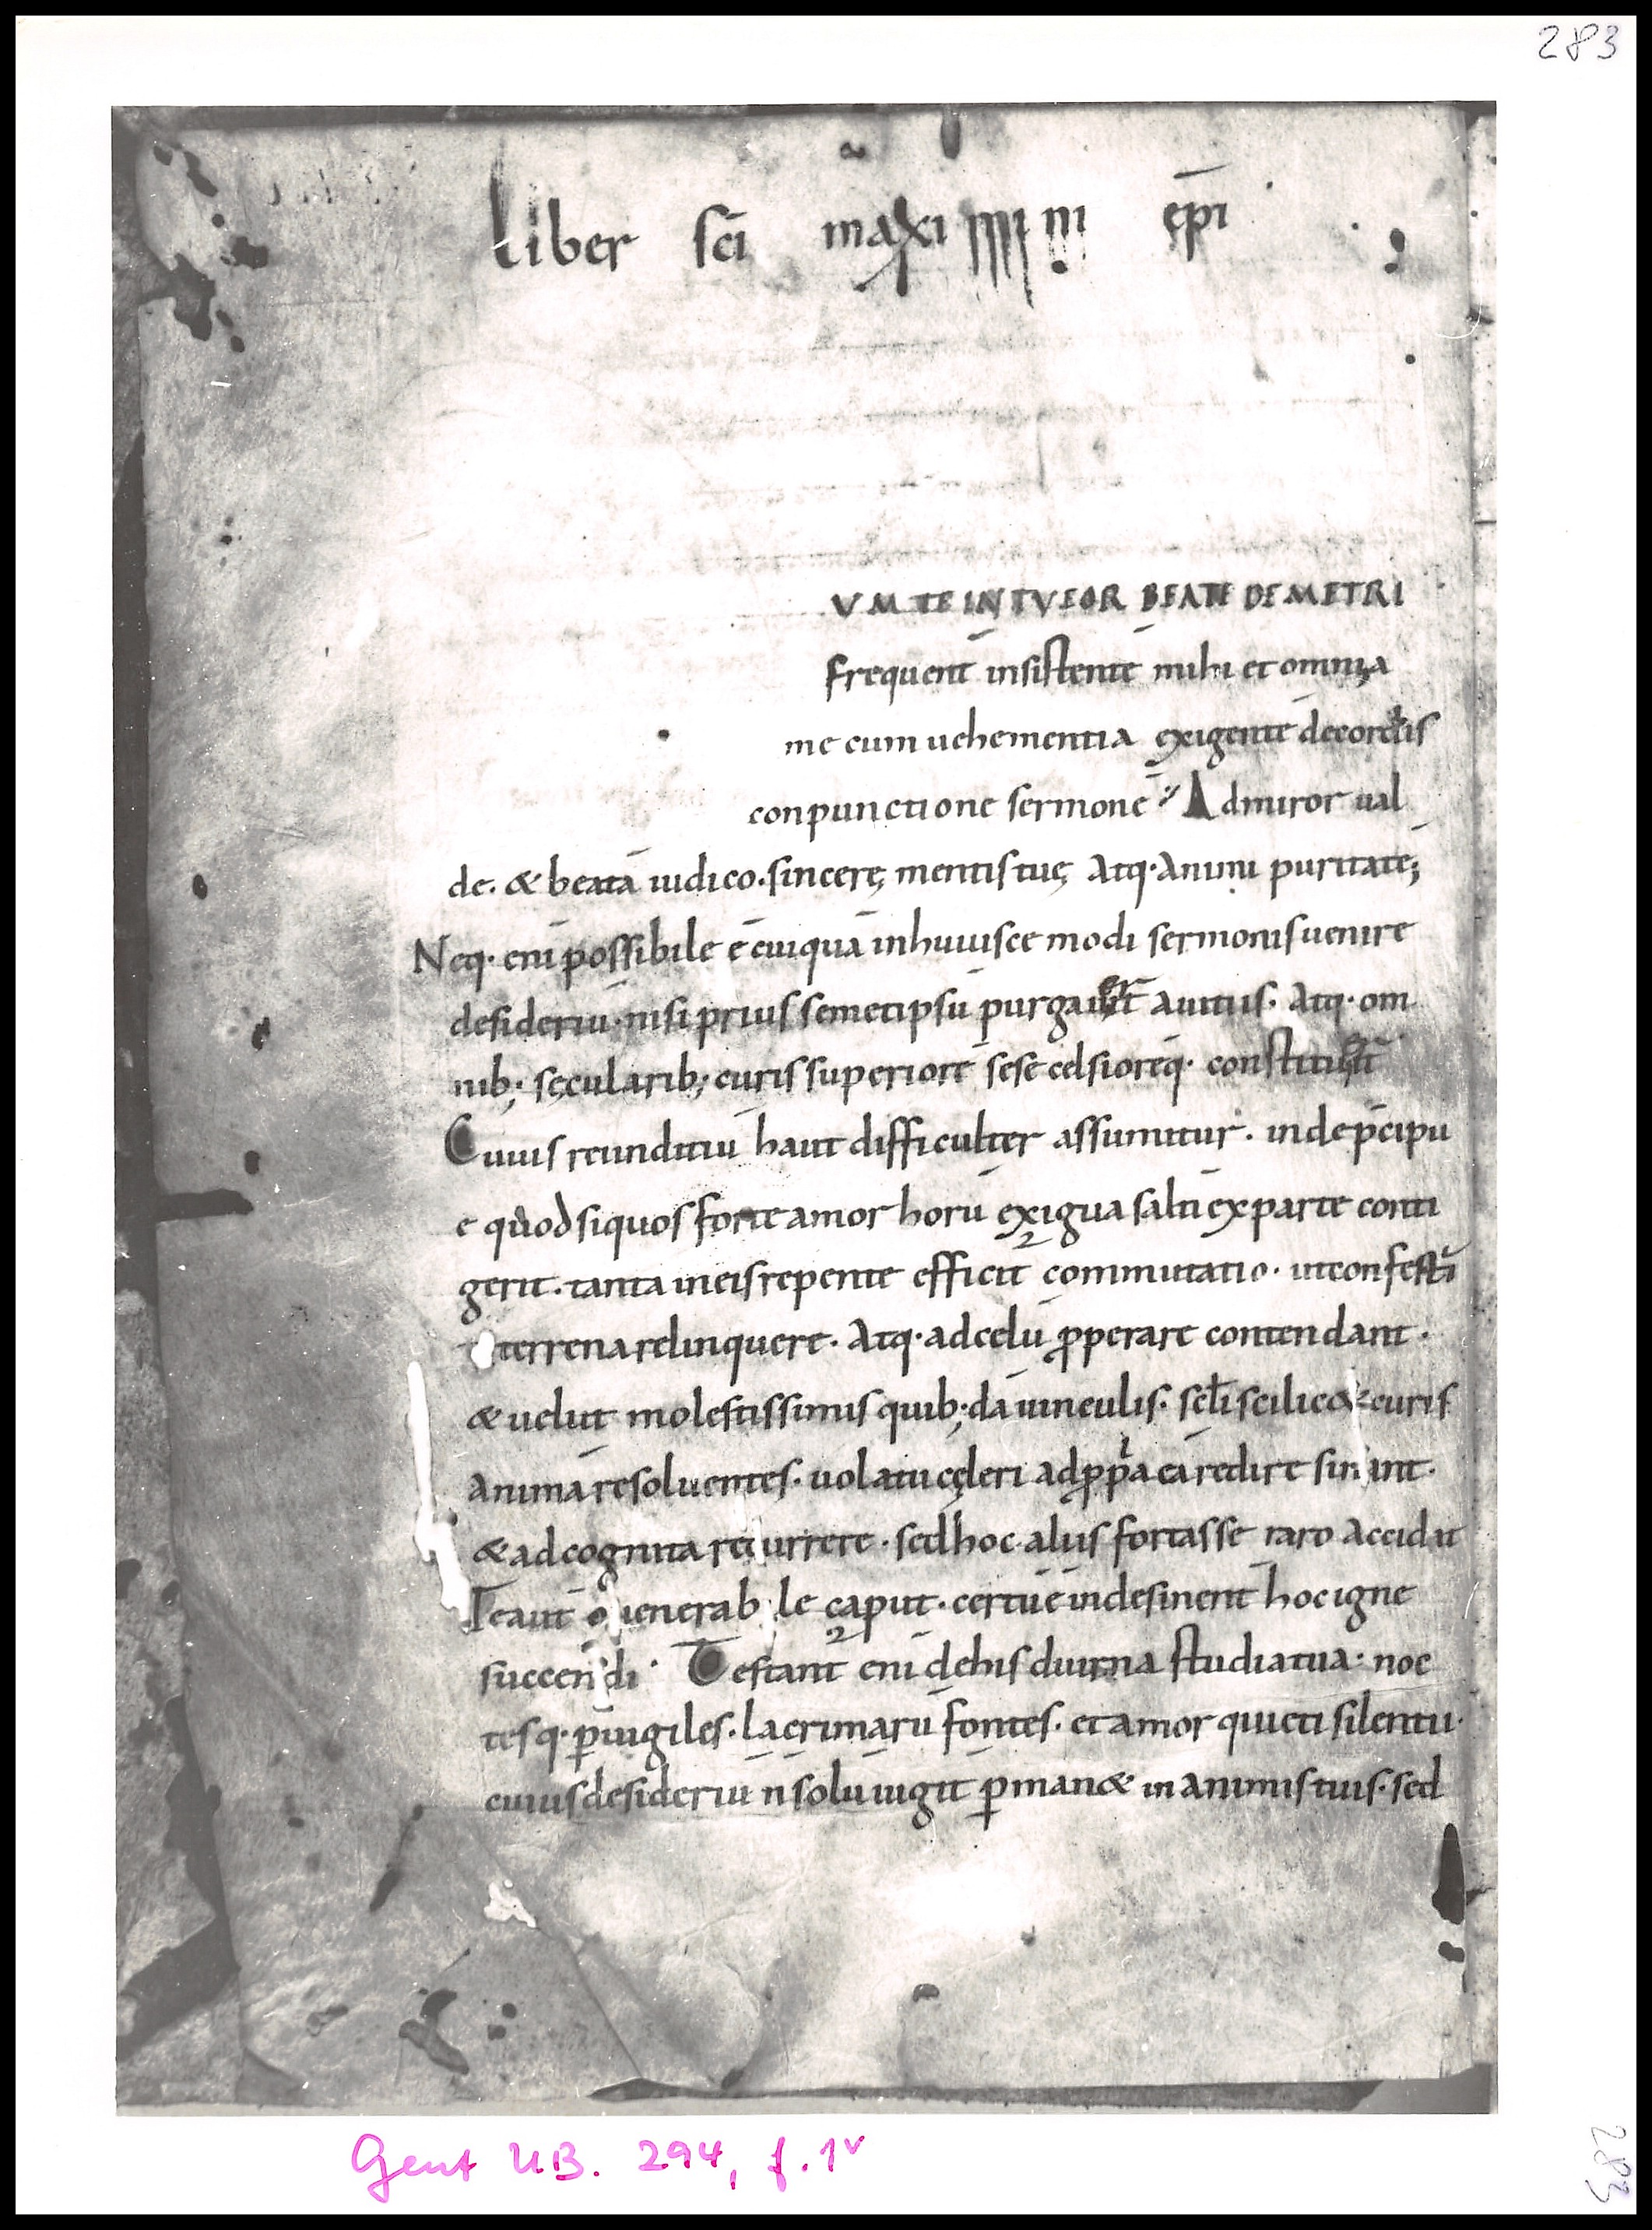 283
liber sc̄i maximini ep̄i
VM TE INTVEOR BEATE DEMETRI
frequent̄ insistentē mihi et omnia
me cum uehementia exigentē de cordis
conpunctione sermonē Admiror ual
de. & beatā iudico. sincerę mentis tuę Atq· Animi puritatē;
Neq· eni possibile ē cuiquā in huiuscemodi sermonis uenire
desideriū· nisi prius semetipsū purgauerit auitiis· Atq· om
nib; sęcularib; curis superiorē sese celsiorēq· constituerit
Cuius rei inditiū haut difficulter assumitur. inde p̄cipu
e quod si quos forte amor horū exigua saltī ex parte conti
gerit. tanta in eis repente efficit commutatio. ut confestī
terrena relinquere. Atq· ad celū properare contendant.
& uelut molestissimis quib;dā uinculis. scł̄i scilic& curis
animā resoluentes. uolatu cęleri ad propria eā redire sinant.
& ad cognita recurrere. sed hoc aliis fortasse raro accidit
Te aut̄ o uenerabile caput. certū ē indesinent̄ hoc igne
succendi· Testant̄ eni de his diurna studia tua· noc
tesq· p̄uigiles. lacrimarū fontes. et amor quieti silentii·
cuius desideriū n̄ solū iugit̄ p̄man& in animis tuis. sed
Gent U.B. 294, f. 1v
283